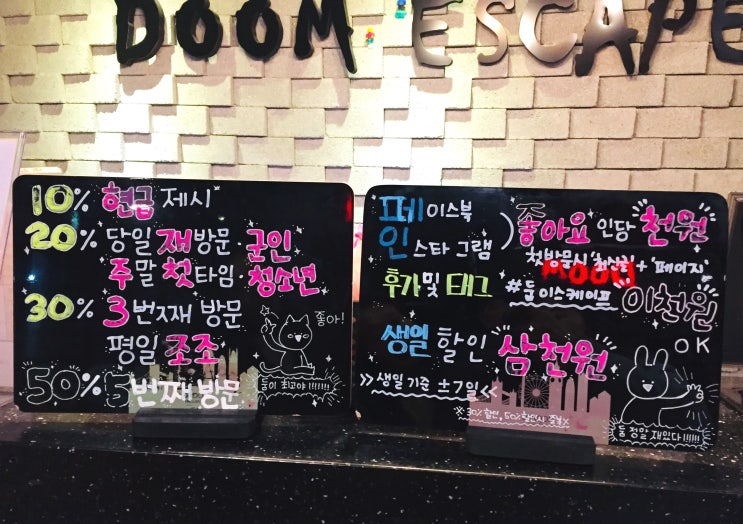 DOOM ESCAPE
10% 현금 제시
20% 당일 재방문 · 군인
주말 첫타임 · 청소년
30% 3번째 방문
평일 조조
50% 5번째 방문
좋아!
둠이 최고야!!!!!!
페이스북
인스타그램
좋아요 인당 천원
첫방문시 + '페이지'
후기 및 태그
#둠이스케이프 이천원
OK
생일 할인 삼천원
>> 생일 기준 ±7일 <<
※30%할인, 50%할인시 중복X
둠 정말 재밌다!!!!!!